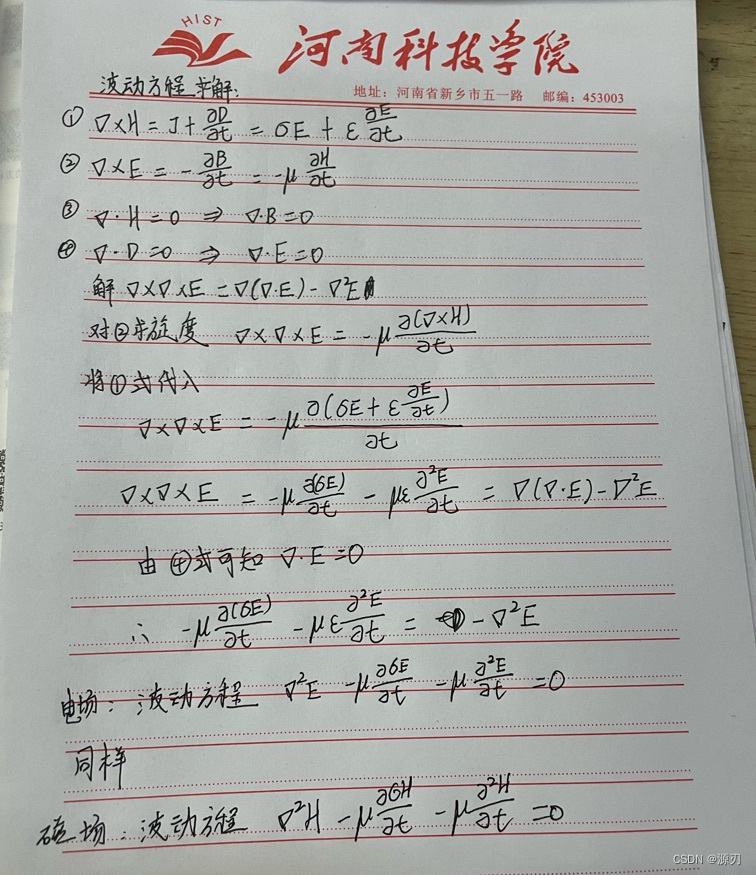 HIST
河南科技学院
地址：河南省新乡市五一路 邮编：453003
波动方程求解:
① ∇×H = J + ∂D/∂t = σE + ε ∂E/∂t
② ∇×E = - ∂B/∂t = -μ ∂H/∂t
③ ∇·H = 0 ⇒ ∇·B = 0
④ ∇·D = 0 ⇒ ∇·E = 0
解 ∇×∇×E = ∇(∇·E) - ∇²E
对②求旋度 ∇×∇×E = -μ ∂(∇×H)/∂t
将①式代入
∇×∇×E = -μ ∂(σE + ε ∂E/∂t)/∂t
∇×∇×E = -μ ∂(σE)/∂t - με ∂²E/∂t = ∇(∇·E) - ∇²E
由④式可知 ∇·E = 0
∴ -μ ∂(σE)/∂t - με ∂²E/∂t = - ∇²E
电场: 波动方程 ∇²E - μ ∂σE/∂t - μ ∂²E/∂t = 0
同样
磁场: 波动方程 ∇²H - μ ∂σH/∂t - μ ∂²H/∂t = 0
CSDN @源刃